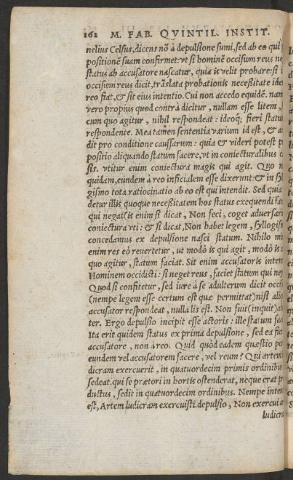 162 M. FAB. QVINTIL. INSTIT.
nelius Celsus, dicens nõ à depulsione sumi, sed ab eo qui
positionẽ suam confirmet: vt si hominẽ occisum reus ne
status ab accusatore nascatur, quia is velit probare: si
occisum reus dicit, trãslata probationis necessitate ide
reo fiat, & sit eius intentio. Cui non accedo equidẽ. nam
vero propius quod contrà dicitur, nullam esse litem,
cum quo agitur, nihil respondeat: ideoq́; fieri statu
respondente. Mea tamen sententia varium id est, & a
dit pro conditione caussarum: quia & videri potest p
positio aliquando statum facere, vt in coniecturalibus c
sis. vtitur enim coniectura magis qui agit. Quo
quidem, eundem à reo infitialem esse dixerunt & in syl
gismo tota ratiocinatio ab eo est qui intendit. Sed quia
detur illis quoque necessitatem hos status exequendi fa
qui negat (is enim si dicat, Non feci, coget aduersari
coniectura vti: & si dicat, Non habet legem, syllogis
concedamus ex depulsione nasci statum. Nihilo mi
enim res eò reuertetur, vt modò is qui agit, modò is
quo agitur, statum faciat. Sit enim accusatoris inten
Hominem occidisti: si neget reus, faciet statum qui ne
Quod si confitetur, sed iure à se adulterum dicit occi
(nempe legem esse certum est quæ permittat) nisi ali
accusator respondeat, nulla lis est. Non fuit (inquit) a
ter. Ergo depulsio incipit esse actoris: ille statum fac
Ita erit quidem status ex prima depulsione, sed ea fie
accusatore, non à reo. Quid quòd eadem quæstio po
eundem vel accusatorem facere, vel reum? Qui artem
dicram exercuerit, in quatuordecim primis ordinibu
sedeat. qui se prætori in hortis ostenderat, neque erat p
ductus, sedit in quatuordecim ordinibus. Nempe inten
est, Artem ludicram exercuisti: depulsio, Non exercui a
ludicra